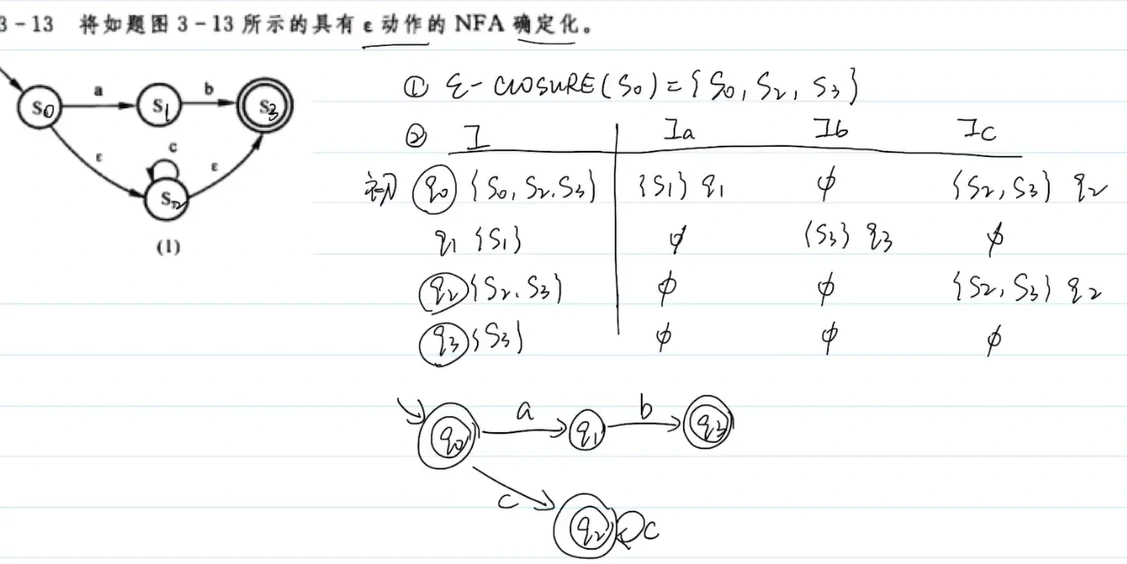 3-13 将如题图 3-13 所示的具有 ε 动作的 NFA 确定化。
S0 a S1 b S3
ε c ε
S2
(1)
① ε-CLOSURE(S0)={S0, S2, S3}
② I Ia Ib Ic
初 q0 {S0, S2, S3} {S1} q1 φ {S2, S3} q2
q1 {S1} φ {S3} q3 φ
q2 {S2, S3} φ φ {S2, S3} q2
q3 {S3} φ φ φ
q0 a q1 b q3
c q2 c